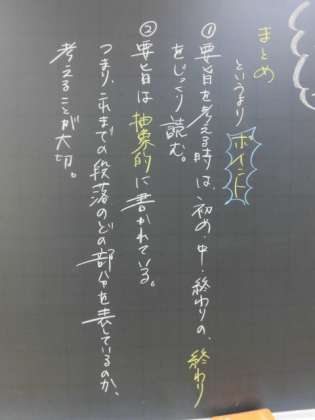 まとめ
というより ポイント
① 要旨を考える時は、初め・中・終わりの、終わり
をじっくり読む。
② 要旨は抽象的に書かれている。
つまり、これまでの段落のどの部分を表しているのか、
考えることが大切。